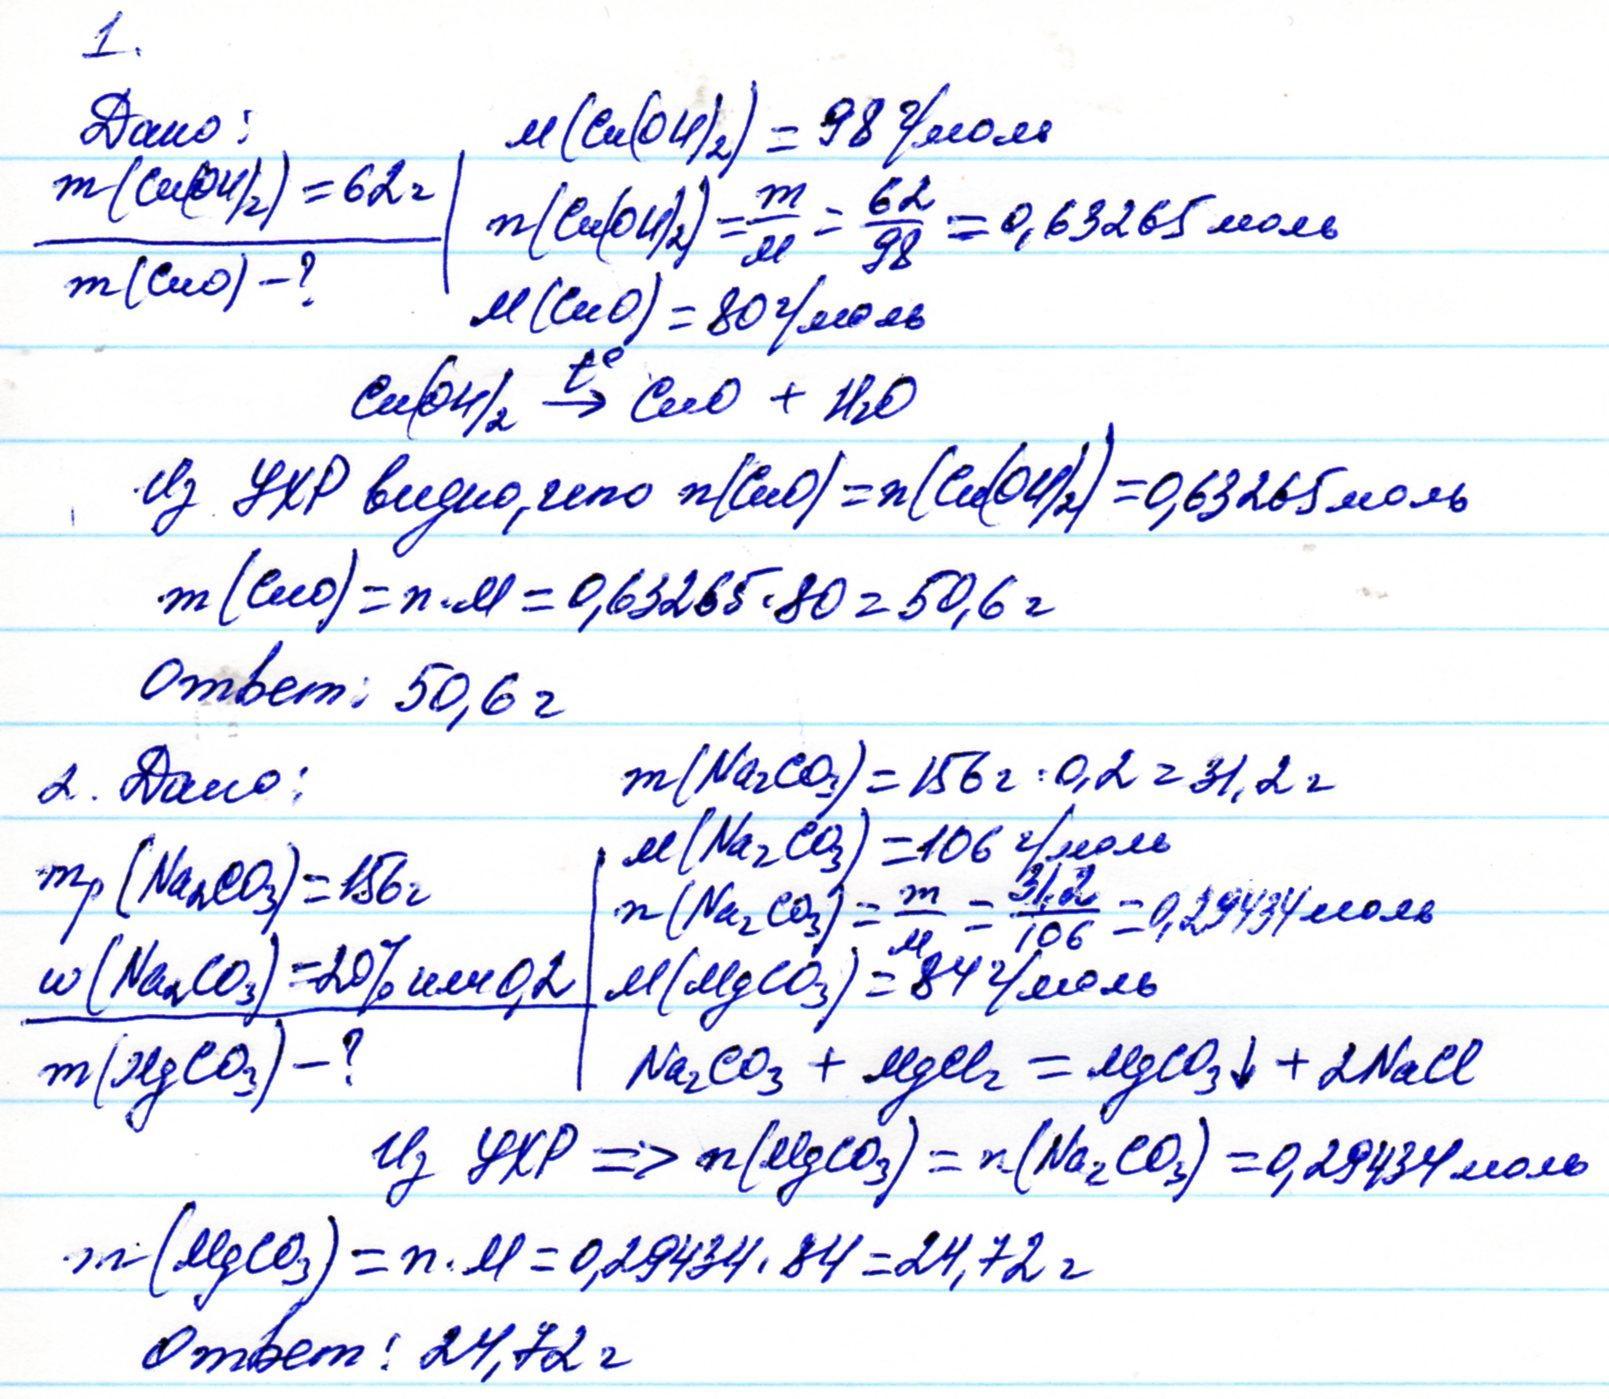 1.
Дано:
m(Cu(OH)₂) = 62 г
m(CuO) – ?
M(Cu(OH)₂) = 98 г/моль
n(Cu(OH)₂) = m/M = 62/98 = 0,63265 моль
M(CuO) = 80 г/моль
Cu(OH)₂ t°→ CuO + H₂O
Из УХР видно, что n(CuO) = n(Cu(OH)₂) = 0,63265 моль
m(CuO) = n·M = 0,63265·80 = 50,6 г
Ответ: 50,6 г
2. Дано:
mр(Na₂CO₃) = 156 г
w(Na₂CO₃) = 20% или 0,2
m(MgCO₃) – ?
m(Na₂CO₃) = 156 г · 0,2 = 31,2 г
M(Na₂CO₃) = 106 г/моль
n(Na₂CO₃) = m/M = 31,2/106 = 0,29434 моль
M(MgCO₃) = 84 г/моль
Na₂CO₃ + MgCl₂ = MgCO₃↓ + 2NaCl
Из УХР => n(MgCO₃) = n(Na₂CO₃) = 0,29434 моль
m(MgCO₃) = n·M = 0,29434·84 = 24,72 г
Ответ: 24,72 г